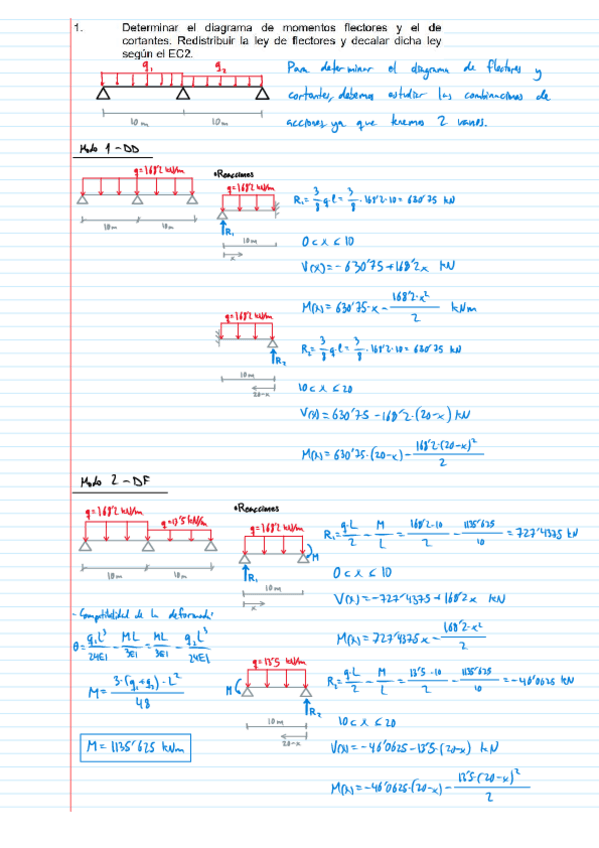 1. Determinar el diagrama de momentos flectores y el de
cortantes. Redistribuir la ley de flectores y decalar dicha ley
según el EC2.
q₁ q₂
10 m 10 m
Para determinar el diagrama de flectores y
cortantes, debemos estudiar las combinaciones de
acciones ya que tenemos 2 vanos.
Modo 1 - DD
q=168'2 kN/m
10m 10m
•Reacciones
q=168'2 kN/m
R₁
10m
x
R₁= 3/8 q·l = 3/8 · 168'2·10 = 630'75 kN
0<x<10
V(x)=-630'75+168'2x kN
M(x)=630'75·x - 168'2·x²/2 kNm
q=168'2 kN/m
R₂
10m
20-x
R₂= 3/8 q·l = 3/8 · 168'2·10 = 630'75 kN
10<x<20
V(x)=630'75-168'2·(20-x) kN
M(x)=630'75·(20-x) - 168'2·(20-x)²/2
Modo 2 - DF
q=168'2 kN/m
q=13'5 kN/m
10m 10m
•Reacciones
q=168'2 kN/m
M
R₁
10m
x
R₁= q·L/2 - M/L = 168'2·10/2 - 1135'625/10 = 727'4375 kN
0<x<10
V(x)=-727'4375+168'2x kN
M(x)=727'4375x - 168'2·x²/2
- Compatibilidad de la deformada:
θ= q₁L³/24EI - ML/3EI = ML/3EI - q₂L³/24EI
M= 3·(q₁+q₂)·L²/48
M= 1135'625 kNm
q=13'5 kN/m
M
R₂
10m
20-x
R₂= q·L/2 - M/L = 13'5·10/2 - 1135'625/10 = -46'0625 kN
10<x<20
V(x)=-46'0625-13'5·(20-x) kN
M(x)=-46'0625·(20-x) - 13'5·(20-x)²/2